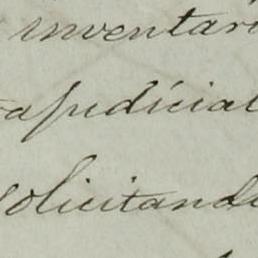 inventari
tajudicial
solicitand